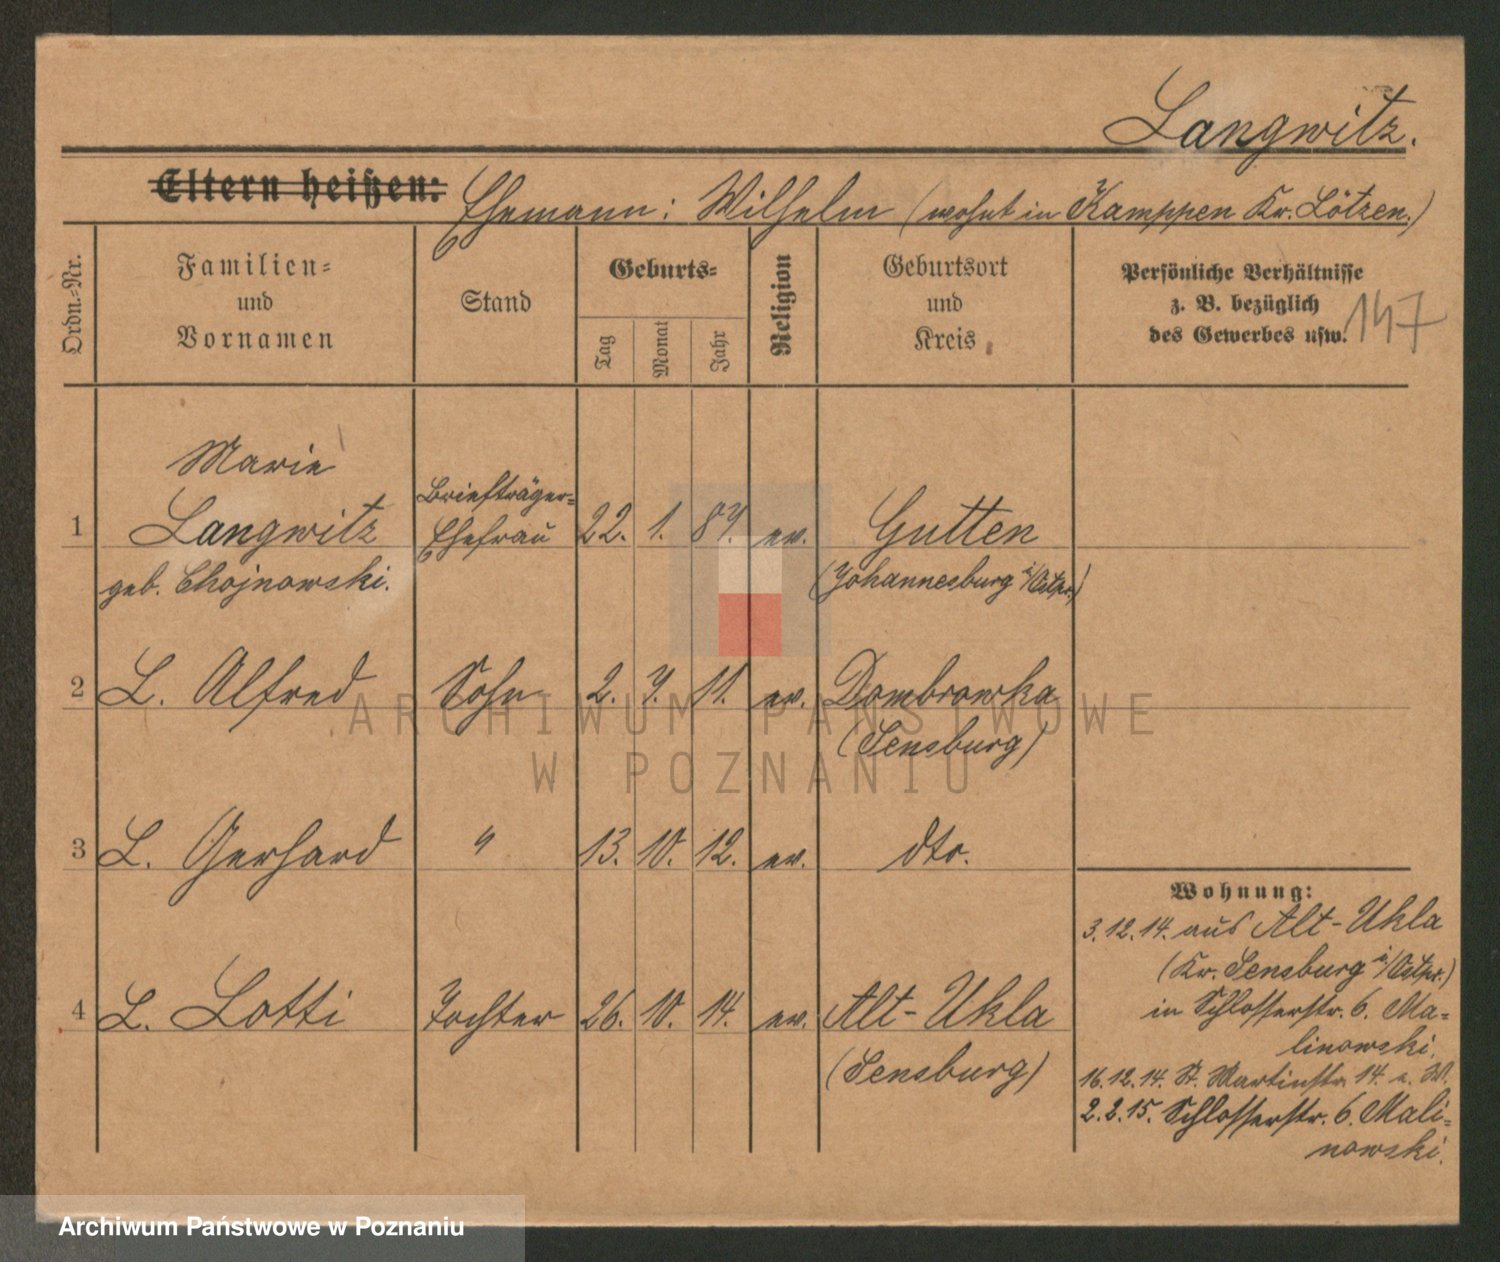 Langwitz.
Eltern heißen: Ehemann: Wilhelm (wohnt in Kamppen Kr. Lötzen.)
Ordn.-Nr.
Familien-
und
Vornamen
Stand
Geburts-
Tag
Monat
Jahr
Religion
Geburtsort
und
Kreis
Persönliche Verhältnisse
z. B. bezüglich
des Gewerbes usw.
147
Marie
Briefträger-
1 Langwitz Ehefrau 22. 1. 87. ev. Gutten
geb. Chojnowski. (Johannesburg i/Ostpr.)
2 L. Alfred Sohn 2. 7. 11. ev. Dombrowka
(Sensburg)
3 L. Gerhard " 13. 10. 12. ev. dto.
4 L. Lotti Tochter 26. 10. 14. ev. Alt-Ukla
(Sensburg)
Wohnung:
3.12.14. aus Alt-Ukla
(Kr. Sensburg i/Ostpr.)
in Schlosserstr. 6. Ma-
linowski.
16.12.14. St. Martinstr. 14. a. W.
2.2.15. Schlosserstr. 6. Mali-
nowski.
ARCHIWUM PAŃSTWOWE
W POZNANIU
Archiwum Państwowe w Poznaniu